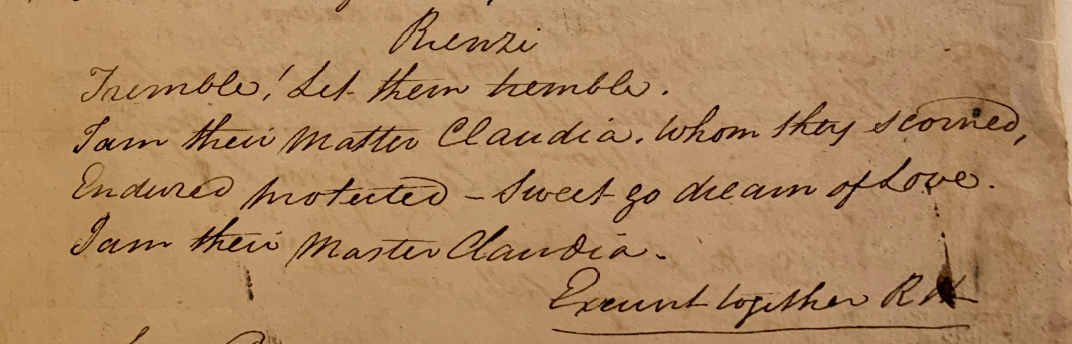 Rienzi
Tremble! Let them tremble.
I am their Master Claudia. Whom they scorned,
Endured protected – Sweet go dream of Love.
I am their Master Claudia.
Exeunt together R H